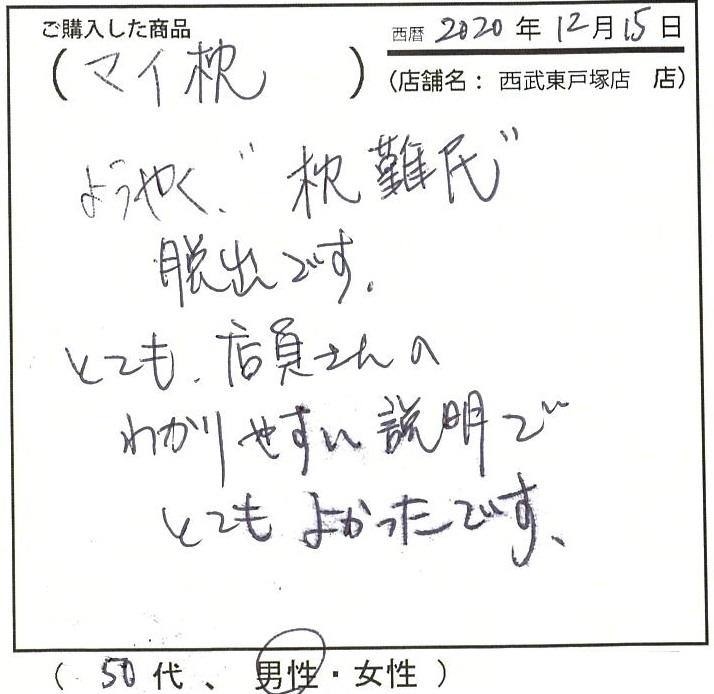 ご購入した商品
西暦 2020年12月15日
(マイ枕)
(店舗名：西武東戸塚店 店)
ようやく、"枕難民"
脱出です。
とても、店員さんの
わかりやすい説明で
とてもよかったです、
(50代、男性・女性)